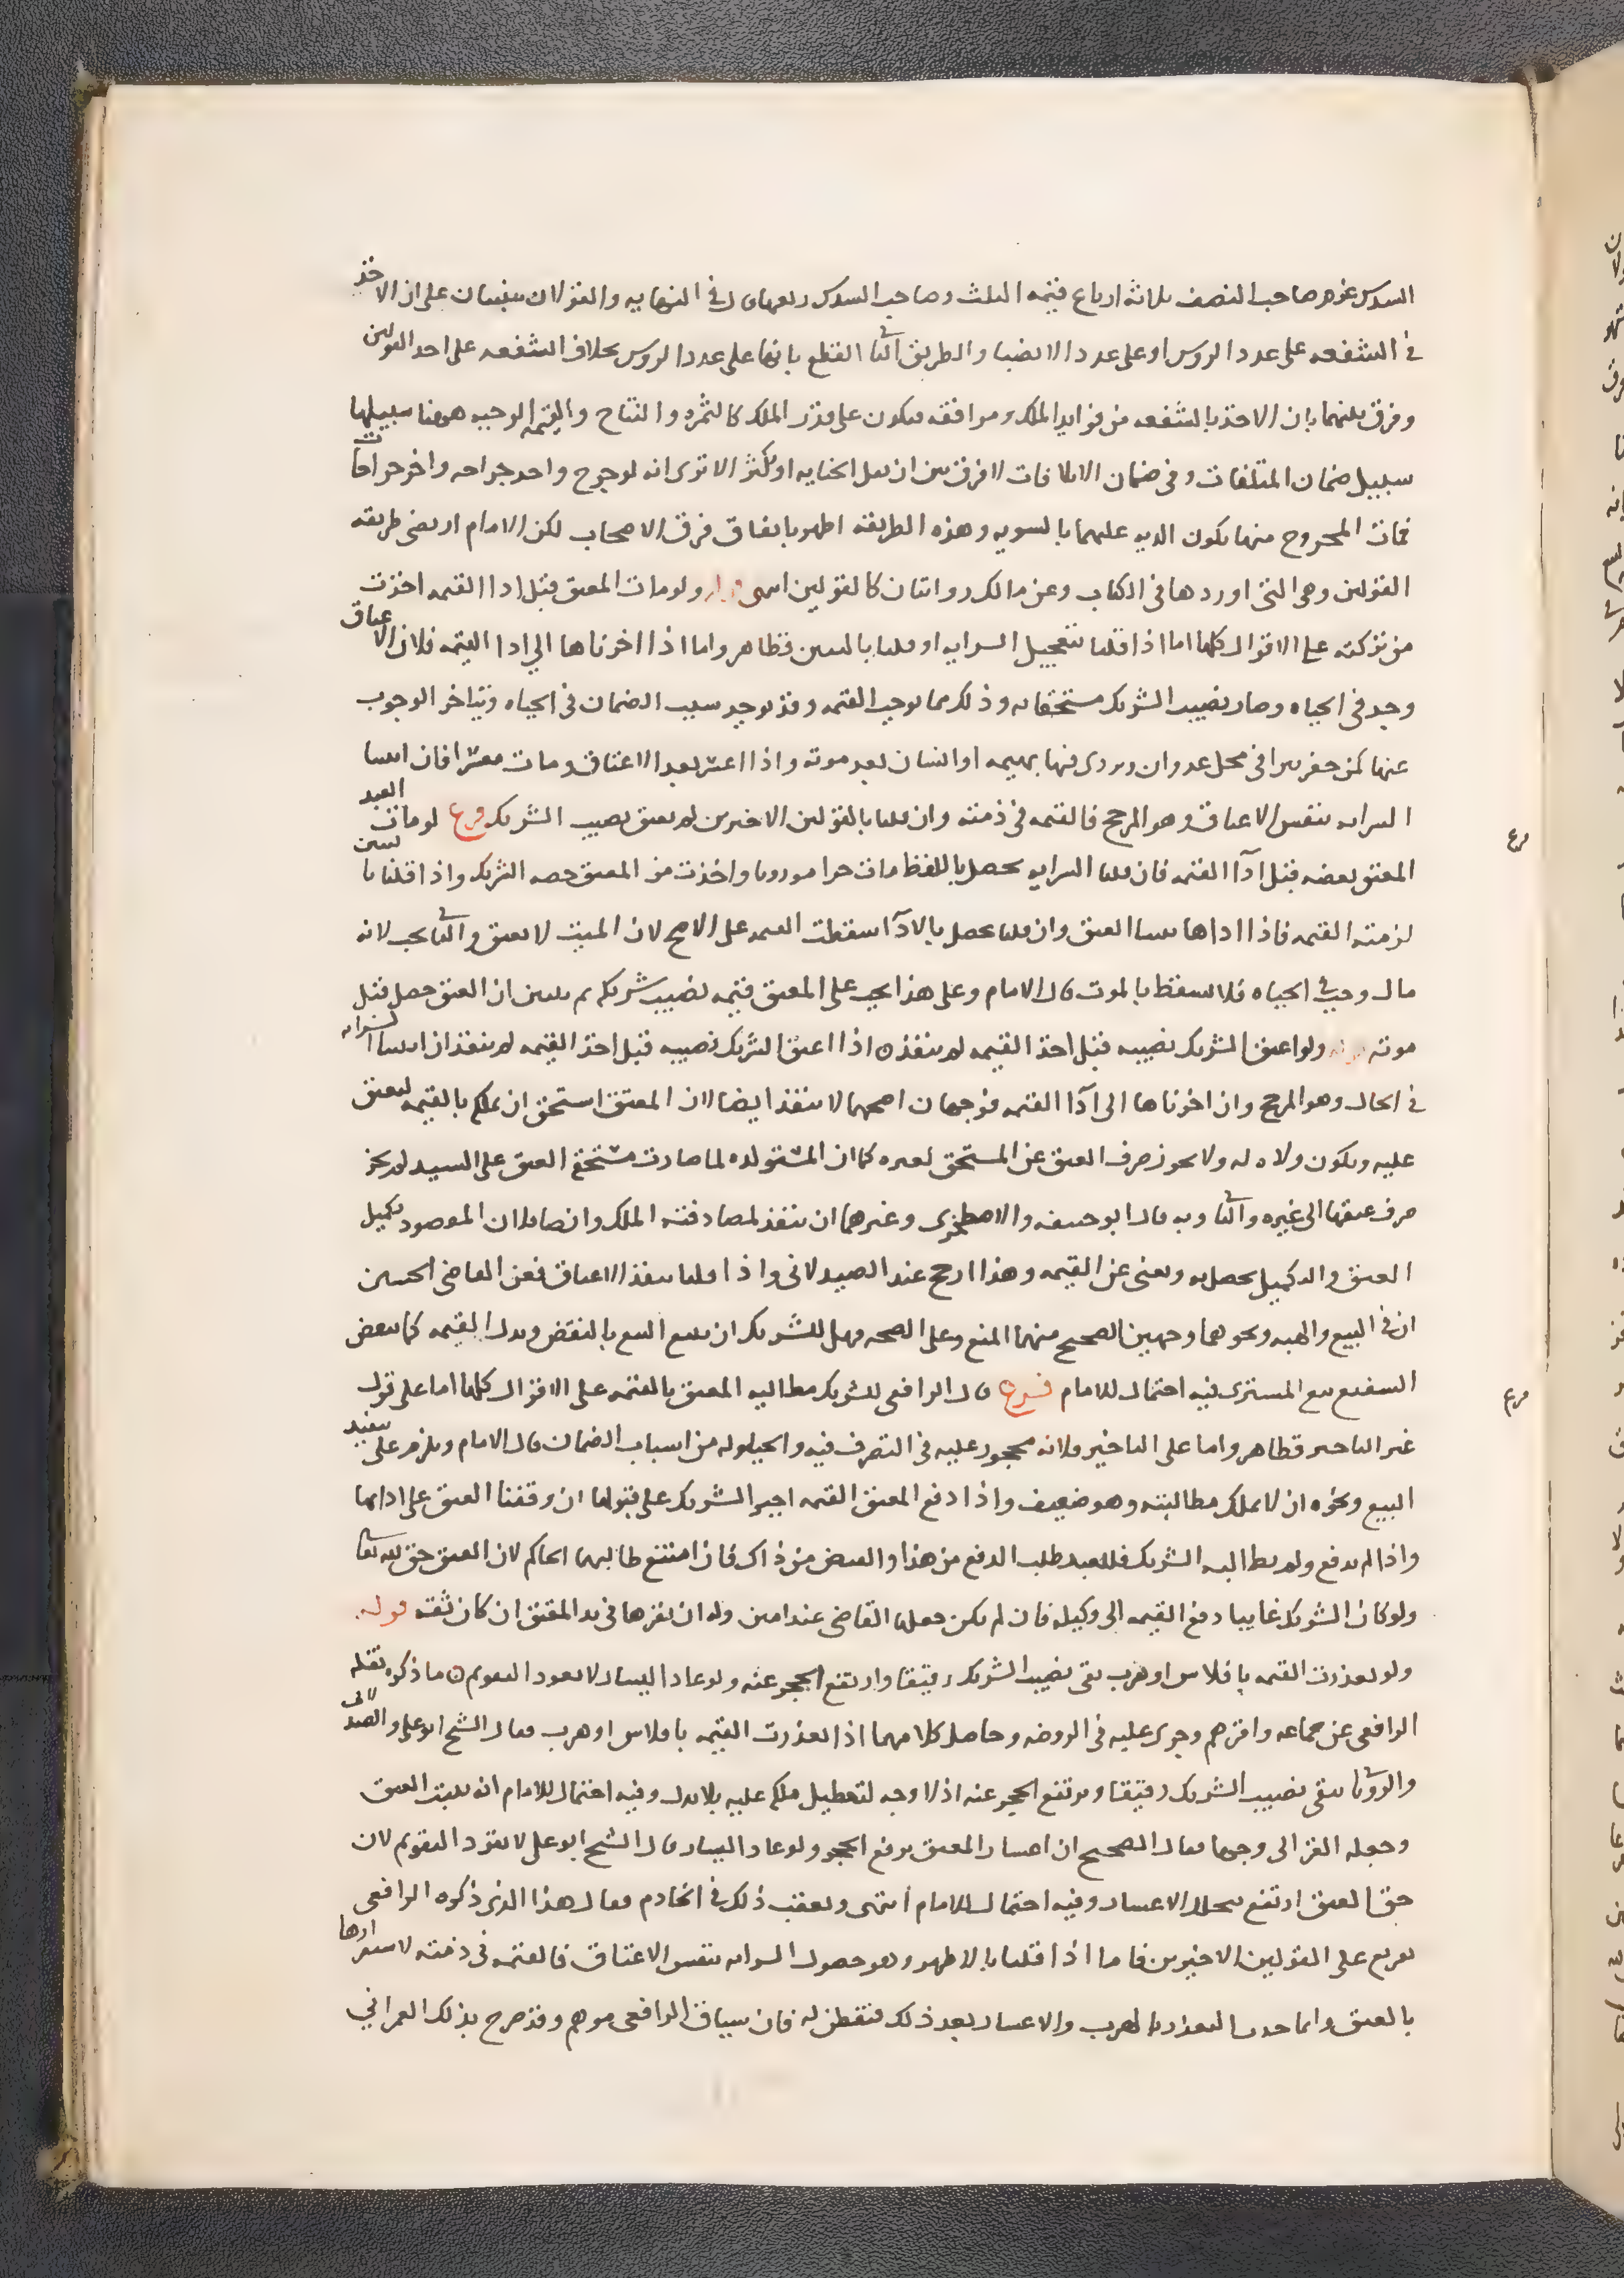 السدس غرم صاحب النصف ثلاثة ارباع قيمة الثلث وصاحب السدس ربعها قال في النهايه والقولان مبنيان على ان الاخذ
في الشفعه على عدد الروس او على عدد الانصبا والطريق الثاني القطع بانها على عدد الروس بخلاف الشفعه على احد القولين
وفرق بينهما بان الاخذ بالشفعه من فوايد الملك ومرافقه فيكون على قدر الملك كالثمره والنتاج والقيمه الواجبه ههنا سبيلها
سبيل ضمان المتلفات وفي ضمان الاتلافات لا فرق بين ان تقل الجنايه او تكثر الا ترى انه لو جرح واحد جراحه واخر جراحات
فمات المجروح منها تكون الديه عليهما بالسويه وهذه الطريقه اظهر باتفاق فرق الاصحاب لكن الامام ارتضى طريقه
القولين وهي التي اوردها في الكتاب وعن مالك روايتان كالقولين انتهى قوله ولو مات المعتق قبل ادا القيمه اخذت
من تركته على الاقوال كلها اما اذا قلنا بتعجيل السرايه او قلنا بالتبين فظاهر واما اذا اخرناها الي ادا القيمه فلان الاعتاق
وجد في الحياه وصار نصيب الشريك مستحقا به وذلك مما يوجب القيمه وقد يوجد سبب الضمان في الحياه ويتاخر الوجوب
عنها كمن حفر بيرا في محل عدوان وتردى فيها بهيمه او انسان بعد موته واذا اعسر بعد الاعتاق ومات معسرا فان اثبتنا
السرايه بنفس الاعتاق وهو المرجح فالقيمه في ذمته وان قلنا بالقولين الاخيرين لم يعتق نصيب الشريك فرع لو مات العبد
المعتق بعضه قبل ادآ القيمه فان قلنا السرايه تحصل باللفظ مات حرا موروثا واخذت من المعتق حصه الشريك واذا قلنا بالتبين
لزمته القيمه فاذا اداها تبينا العتق وان قلنا تحصل بالادآ سقطت القيمه على الاصح لان الميت لا يعتق والثاني تجب لانه
مال وجب في الحياه فلا يسقط بالموت قال الامام وعلى هذا يجب على المعتق قيمه نصيب شريكه ثم يتبين ان العتق حصل قبل
موته قوله ولو اعتق الشريك نصيبه قبل اخذ القيمه لم ينفذ ه اذا اعتق الشريك نصيبه قبل اخذ القيمه لم ينفذ ان اثبتنا السرايه
في الحال وهو المرجح وان اخرناها الى ادآ القيمه فوجهان اصحهما لا ينفذ ايضا لان المعتق استحق ان يملكه بالقيمه ليعتق
عليه ويكون ولاه له ولا يجوز صرف العتق عن المستحق لغيره كما ان المستولده لما صارت مستحقه العتق على السيد لم يجز
صرف عتقها الى غيره والثاني وبه قال ابو حنيفه والاصطخري وغيرهما ان ينفذ لمصادفته الملك وانصافا ان المقصود تكميل
العتق والتكميل يحصل به ويغني عن القيمه وهذا ارجح عند الصيدلاني واذا قلنا ينفذ الاعتاق فعن القاضي الحسين
ان في البيع والهبه ونحوهما وجهين الصحيح منهما المنع وعلى الصحه فهل للشريك ان يتبع البيع بالنقض وبذل القيمه كما ينقض
الشفيع بيع المشتري فيه احتمال للامام فرع قال الرافعي للشريك مطالبه المعتق بالقيمه على الاقوال كلها اما على قول
غير التاخير فظاهر واما على التاخير فلانه محجور عليه في التصرف فيه والحيلوله من اسباب الضمان قال الامام ويلزم على تنفيذ
البيع ونحوه ان لا يملك مطالبته وهو ضعيف واذا دفع المعتق القيمه اجبر الشريك على قبولها ان وقفنا العتق على ادايها
واذا لم يدفع ولم يطالبه الشريك فللعبد طلب الدفع من هذا والقبض من ذاك فان امتنع طالبهما الحاكم لان العتق حق لله تعالى
ولو كان الشريك غايبا دفع القيمه الى وكيله فان لم يكن جعلها القاضي عند امين وله ان يقرها في يد المعتق ان كان ثقه قوله
ولو تعذرت القيمه بافلاس او هرب بقي نصيب الشريك رقيقا وارتفع الحجر عنه ولو عاد اليسار لا يعود التقويم ه ما ذكره نقله
الرافعي عن جماعه واقرهم وجرى عليه في الروضه وحاصل كلامهما اذا تعذرت القيمه بافلاس او هرب فقال الشيخ ابو علي والصيدلاني
والروياني يبقى نصيب الشريك رقيقا ويرتفع الحجر عنه اذ لا وجه لتعطيل ملكه عليه بلا بدل وفيه احتمال للامام انه يثبت العتق
وجعله الغزالي وجها فقال الصحيح ان اعسار المعتق يرفع الحجر ولو عاد اليسار قال الشيخ ابو علي لا يعود التقويم لان
حق العتق ارتفع بتخلل الاعسار وفيه احتمال للامام انتهى وتعقب ذلك في الخادم فقال هذا الذي ذكره الرافعي
تفريع على القولين الاخيرين فاما اذا قلنا بالاظهر وهو حصول السرايه بنفس الاعتاق فالقيمه في ذمته لاستقرارها
بالعتق وانما حدث التعذر بالهرب والاعسار بعد ذلك فتفطن له فان سياق الرافعي موهم وقد صرح بذلك العمراني
فرع
فرع